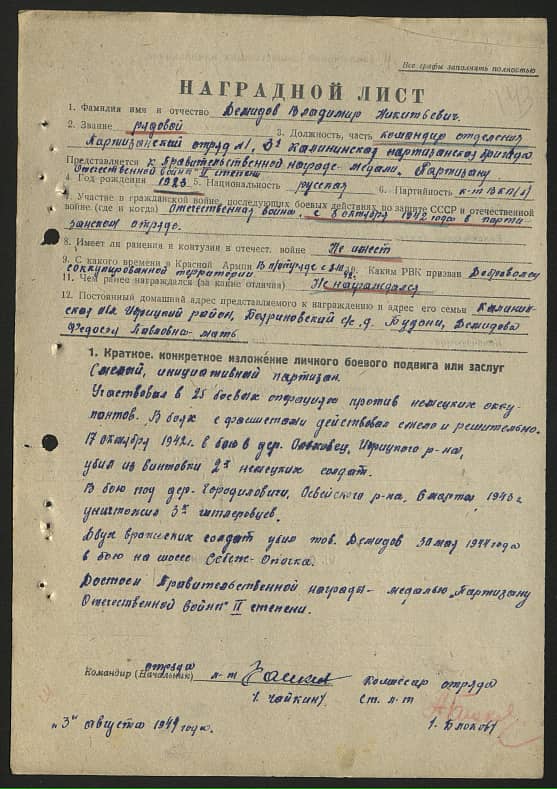 Все графы заполнять полностью
НАГРАДНОЙ ЛИСТ
1. Фамилия имя и отчество Демидов Владимир Никитьевич.
2. Звание рядовой 3. Должность, часть командир отделения
Партизанский отряд №1, 3й Калининской партизанской бригады
Представляется к Правительственной награде-медали „Партизану
Отечественной войны" II степени
4. Год рождения 1923 5. Национальность русская 6. Партийность к-т ВКП(б)
7. Участие в гражданской войне, последующих боевых действиях по защите СССР и отечественной
войне (где и когда) Отечественная война, с 8 октября 1942 года в парти-
занском отряде.
8. Имеет ли ранения и контузия в отечест. войне Не имеет
9. С какого времени в Красной Армии В п/отряде с 8.10.42г. Каким РВК призван Доброволец
с оккупированной территории
11. Чем ранее награждался (за какие отличия) Не награждался
12. Постоянный домашний адрес представляемого к награждению и адрес его семьи Калинин-
ская обл. Идрицкий район, Бояриновский с/с. д. Будони, Демидова
Федосья Павловна-мать
1. Краткое. конкретное изложение личного боевого подвига или заслуг
Смелый, инициативный партизан.
Участвовал в 25 боевых операциях против немецких окку-
пантов. В боях с фашистами действовал смело и решительно.
17 октября 1942г. в бою в дер. Идрицкого р-на,
убил из винтовки 2х немецких солдат.
В бою под дер. Городиловичи, Освейского р-на, 6 марта 1943 г
уничтожил 3х гитлеровцев.
Двух вражеских солдат убил тов. Демидов 30 мая 1944 года
в бою на шоссе Себеж-Опочка.
Достоин Правительственной награды - медалью „Партизану
Отечественной войны" II степени.
Командир (Начальник) отряда л-т Чайкин Комиссар отряда
/ Чайкин / ст. л-т
„3" августа 1944 года. / Блохов /